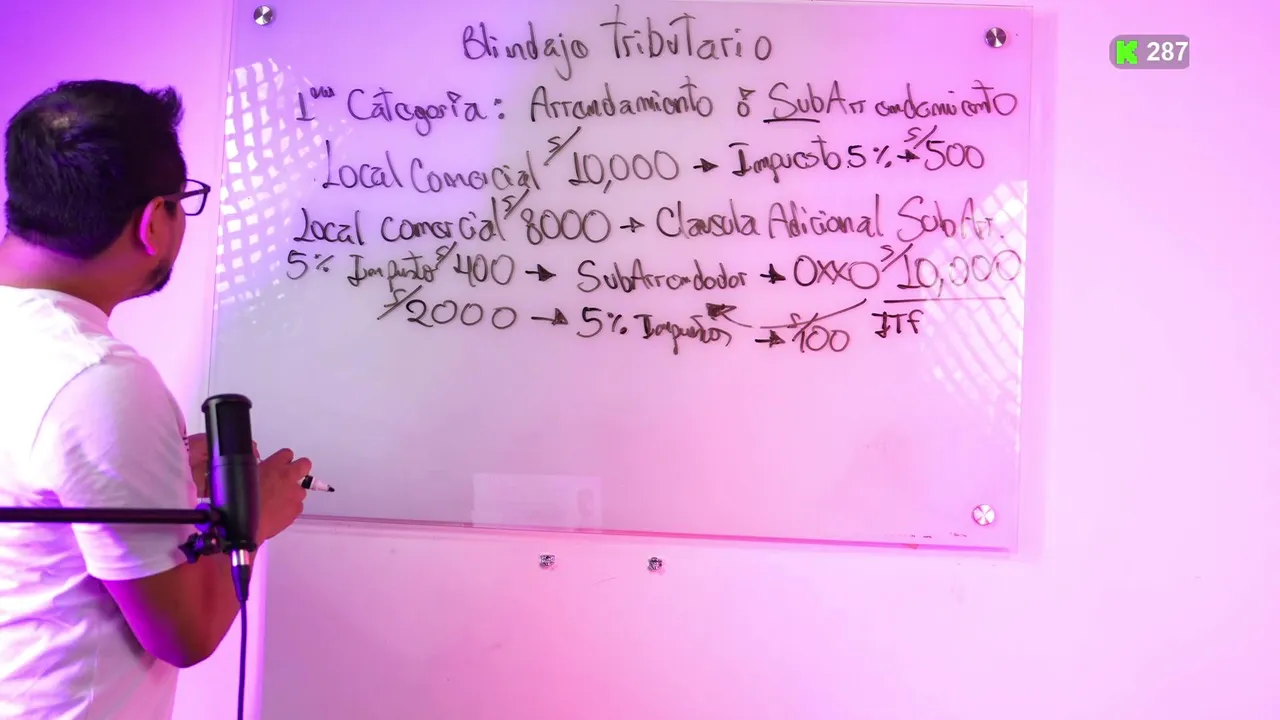 Blindajo Tributario
1ra Categoria: Arrendamiento ó SubArrendamiento
Local Comercial S/10,000 → Impuesto 5% → S/500
Local comercial S/8000 → Clausula Adicional SubArr.
5% Impuesto S/400 → SubArrendador → OXXO S/10,000
S/2000 → 5% Impuestos → S/100 ITf
K 287